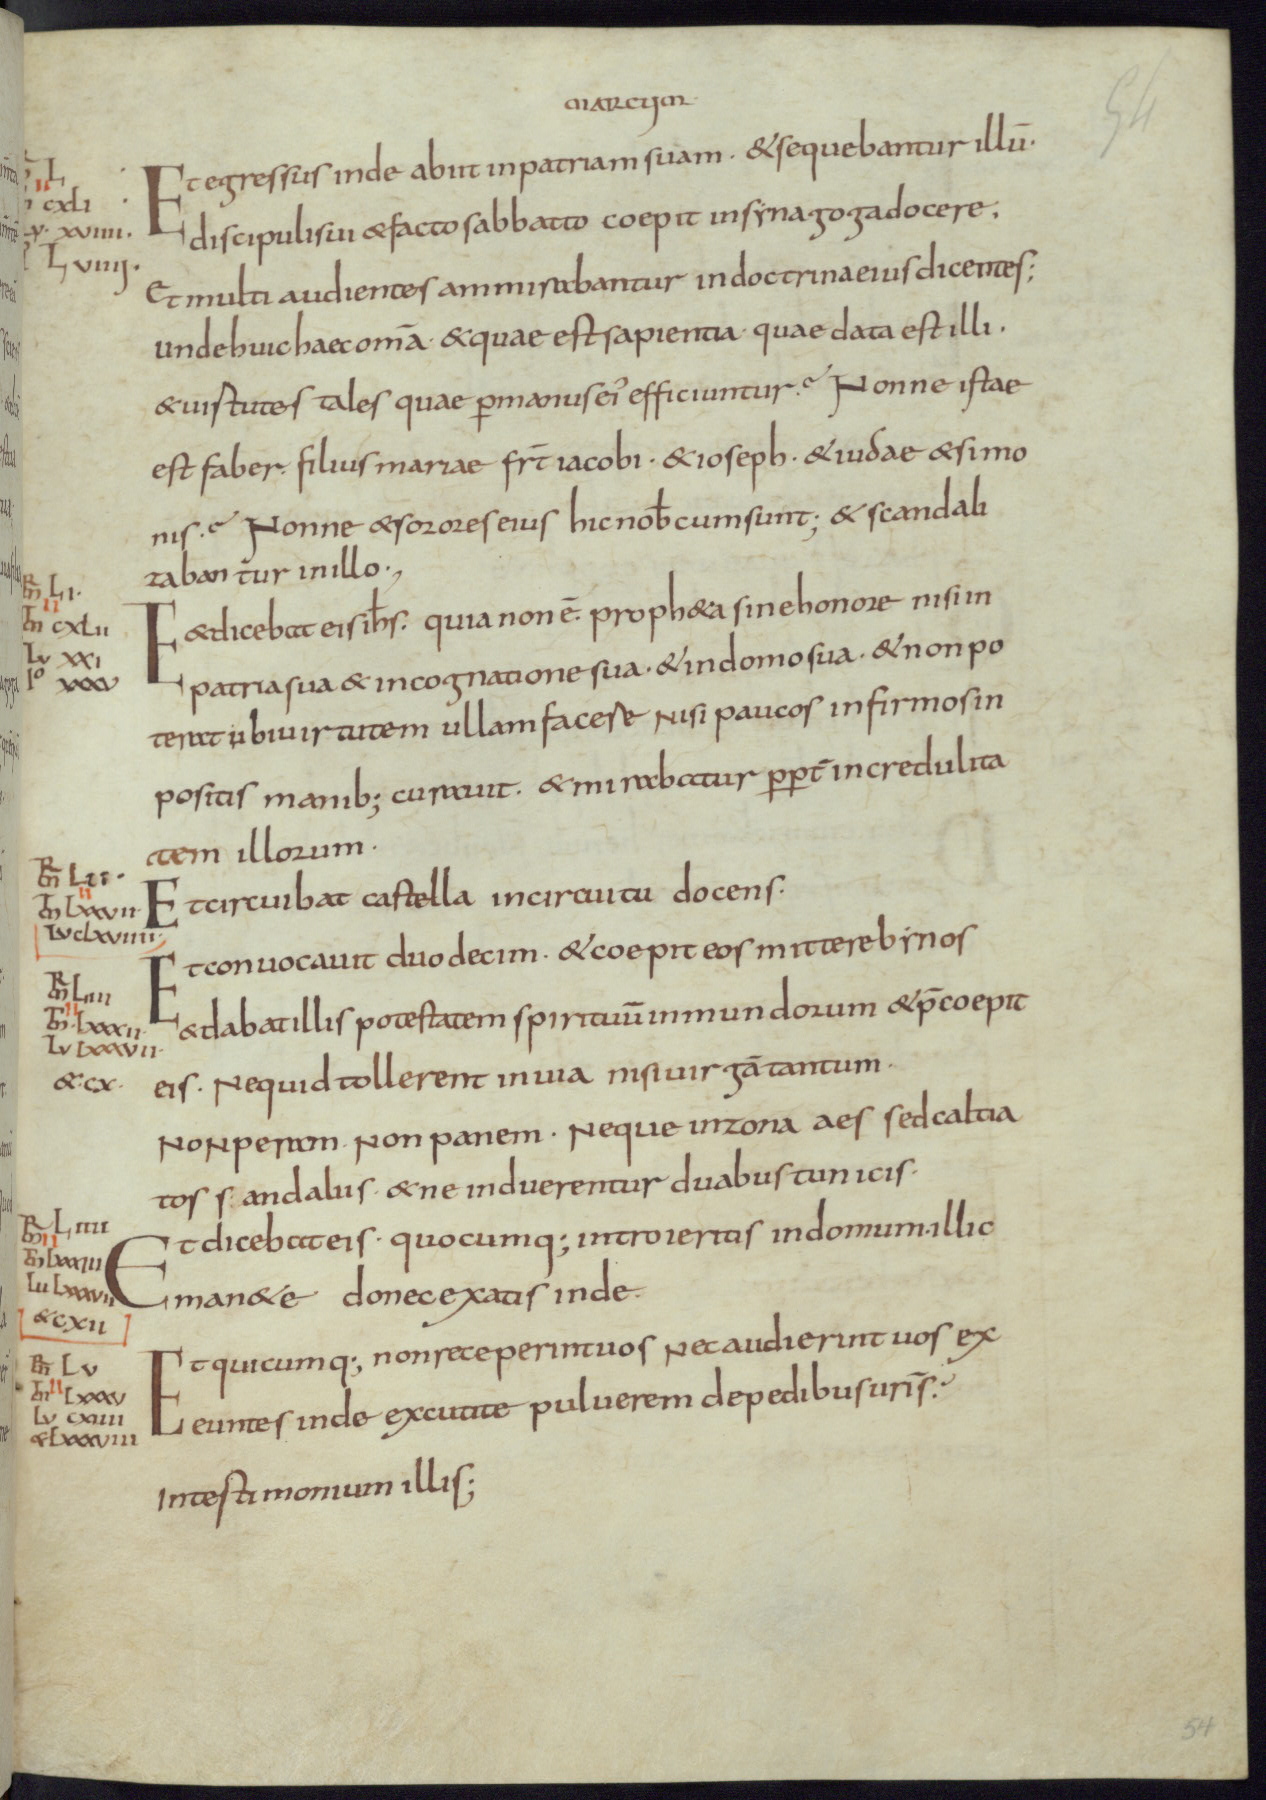 marcum
54
Et egressus inde abiit in patriam suam · & sequebantur illū ·
discipuli sui & facto sabbatto coepit in synagoga docere ·
Et multi audientes ammirabantur in doctrina eius dicentes;
unde huic haec omā · & quae est sapientia · quae data est illi ·
& uirtutes tales quae p manus eī efficiuntur · Nonne istae
est faber · filius mariae fr̄t iacobi · & ioseph · & iudae & simo
nis · Nonne & sorores eius hic nob̄cum sunt; & scandali
zaban t̄ur in illo ·,
L
II
cxli
Lv · xviiii ·
Lviiij ·
M̄R LI ·
II
M̄ cxLii
Lv xxi
Io xxxv
Et & dicebat eis ih̄s · quia non ē · proph&a sine honore nisi in
patria sua & in cognatione sua · & in domo sua · & non po
terat ubi uirtutem ullam facere Nisi paucos infirmos in
positis manib; curauit · & mirabatur pp̄t incredulita
tem illorum ·
M̄R Lii ·
II
M̄ lxxvii ·
Lv clxviiii
Et circuibat castella in circuitu docens ·
M̄R Liii
II
M̄ · lxxxii ·
Lv lxxxvii ·
& · cx ·
Et conuocauit duodecim · & coepit eos mittere bynos
& dabat illis potestatem spirituū inmundorum & p̄coepit
eis · Ne quid tollerent in uia nisi uirgā tantum ·
Non peram · Non panem · Neque in zona aes sed caltia
tos s · andaliis · & ne induerentur duabus tunicis ·
M̄R Liiii
II
M̄ lxxxiii
Lu lxxxvii
& cxii
Et dicebat eis · quocumq; introieritis in domum · illic
man&e donec exatis inde ·
M̄R Lv
II
M̄ lxxxv
Lv cxiiii
& lxxxviii
Et quicumq; non receperint uos Nec audierint uos ex
euntes inde excutite puluerem de pedibus ur̄is ·
In testimonium illis;
54